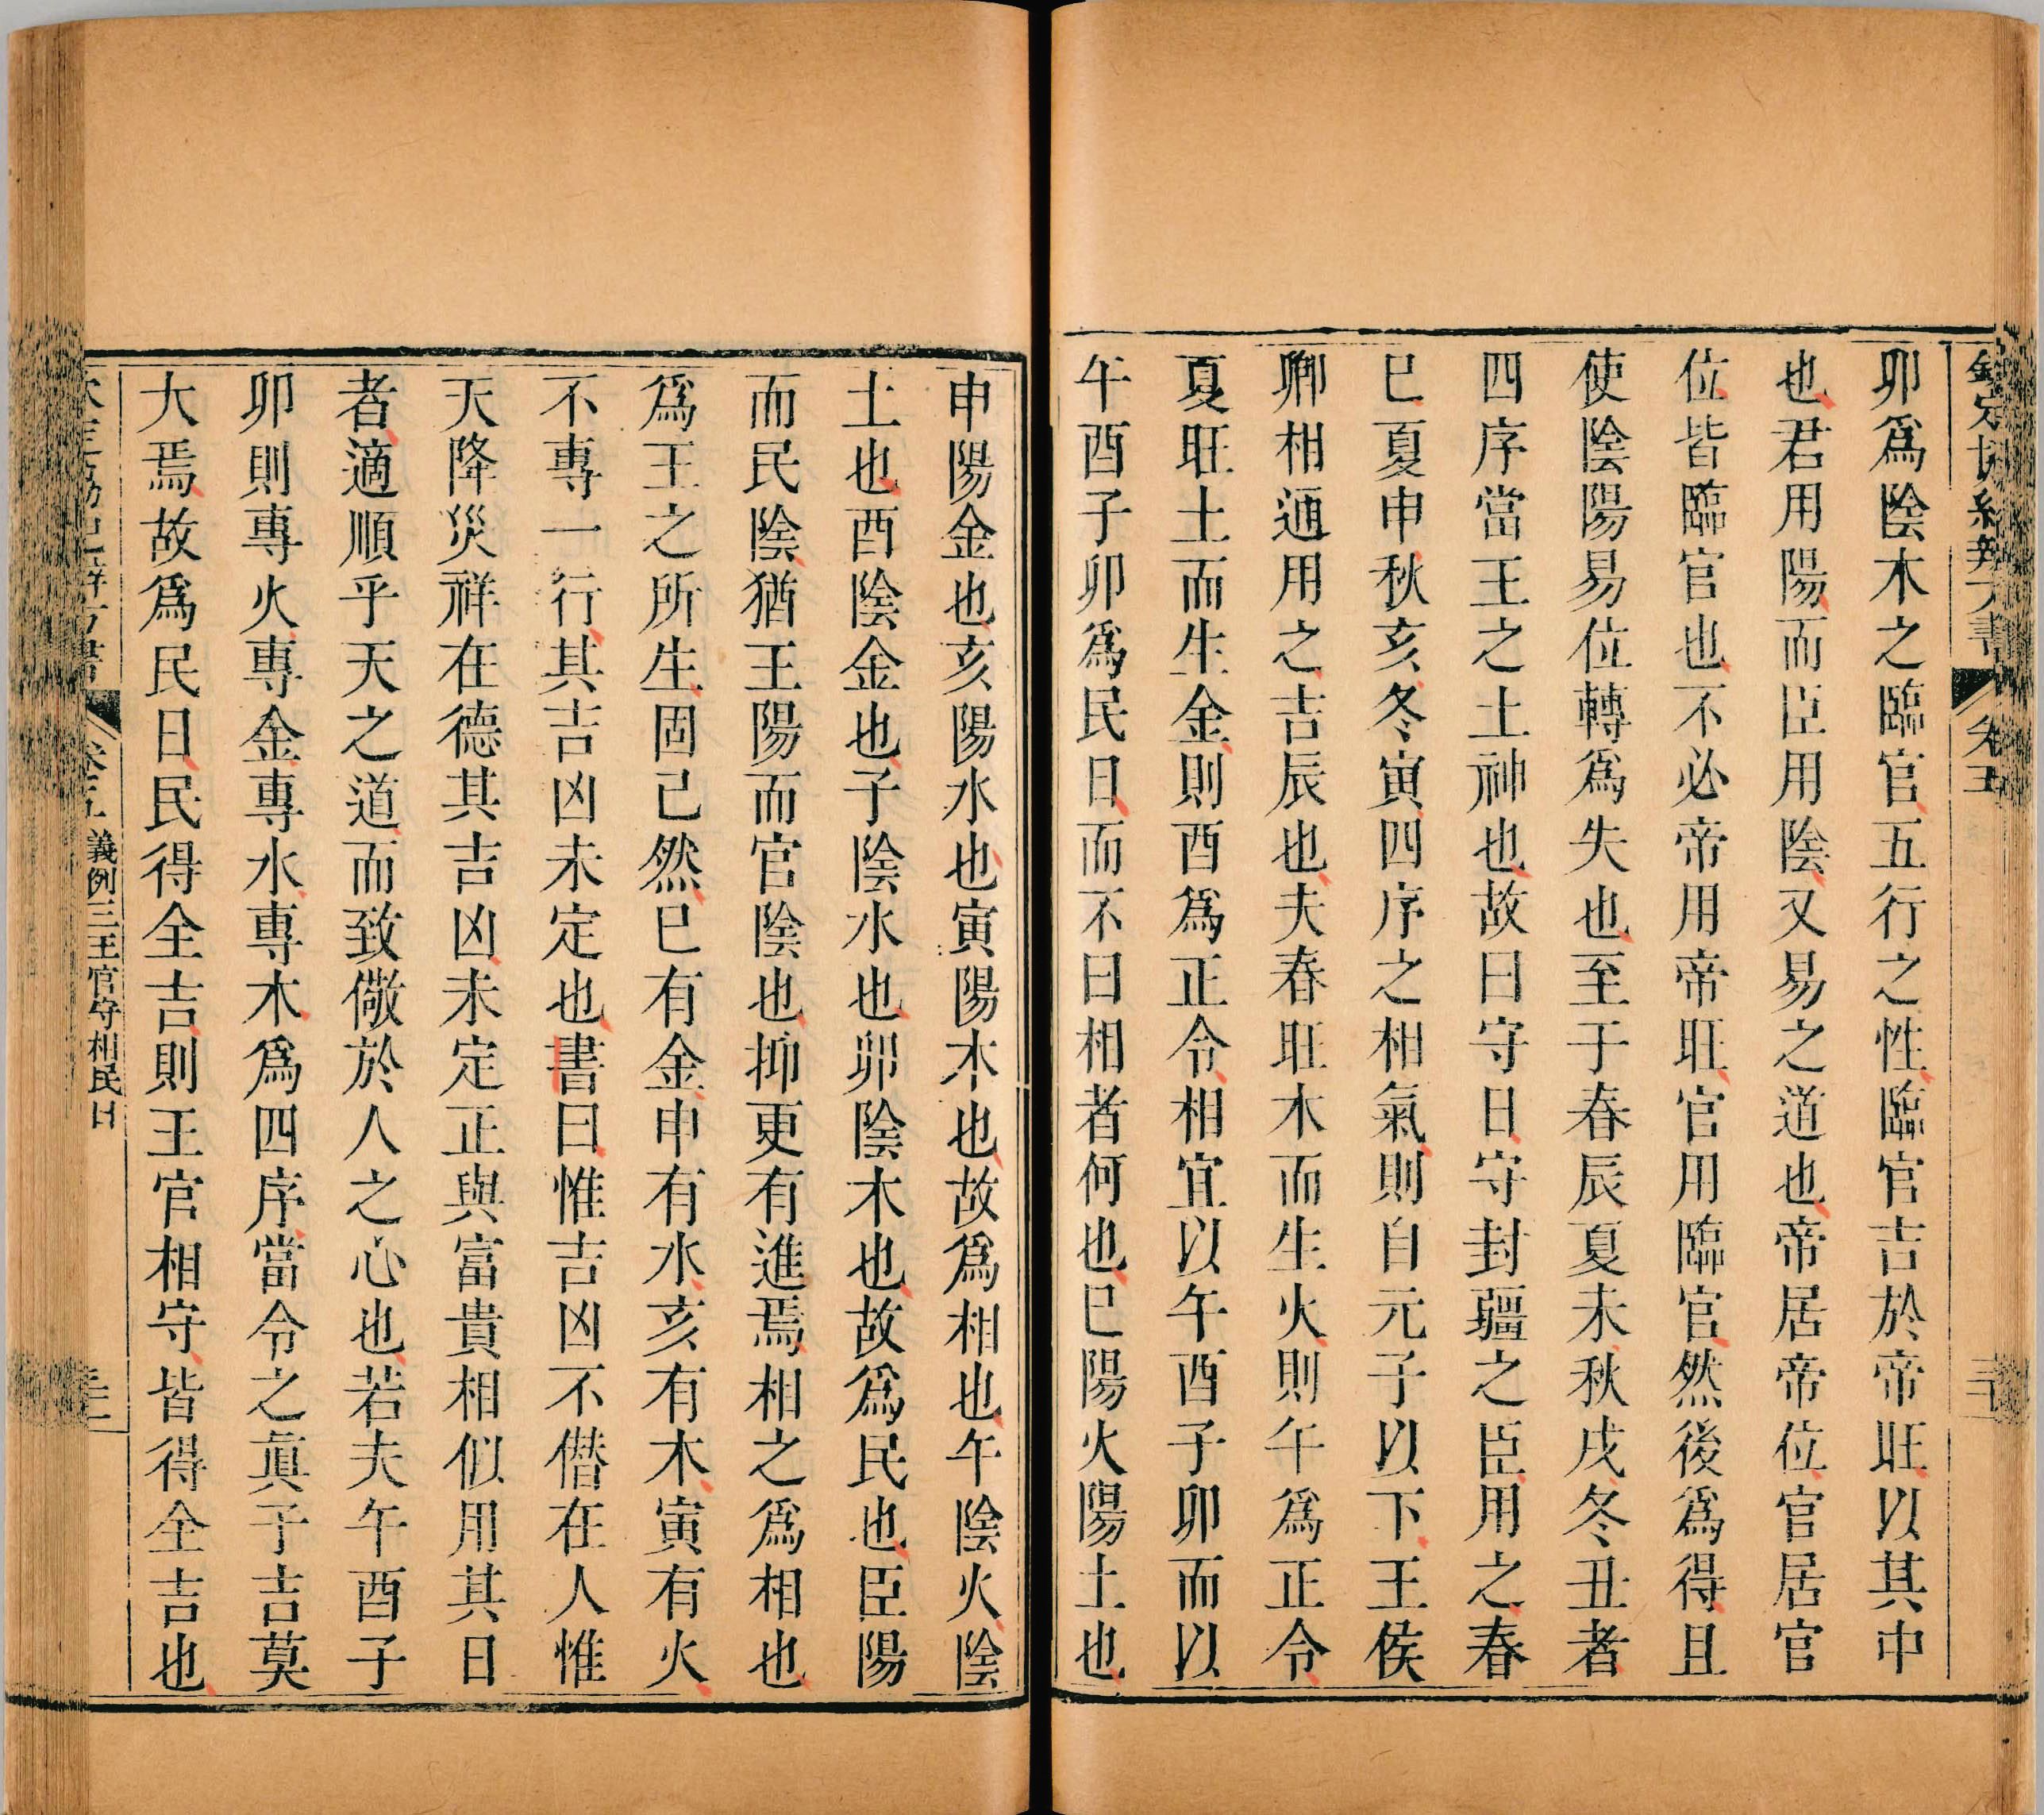 欽定協紀辨方書 卷五 三十
卯爲陰木之臨官五行之性臨官吉於帝旺以其中
也君用陽而臣用陰又易之道也帝居帝位官居官
位皆臨官也不必帝用帝旺官用臨官然後爲得且
使陰陽易位轉爲失也至于春辰夏未秋戌冬丑者
四序當王之土神也故曰守日守封疆之臣用之春
巳夏申秋亥冬寅四序之相氣則自元子以下王侯
卿相通用之吉辰也夫春旺木而生火則午爲正令
夏旺土而生金則酉爲正令相宜以午酉子卯而以
午酉子卯爲民日而不曰相者何也巳陽火陽土也
申陽金也亥陽水也寅陽木也故爲相也午陰火陰
土也酉陰金也子陰水也卯陰木也故爲民也臣陽
而民陰猶王陽而官陰也抑更有進焉相之爲相也
爲王之所生固已然巳有金申有水亥有木寅有火
不專一行其吉凶未定也書曰惟吉凶不僭在人惟
天降災祥在德其吉凶未定正與富貴相似用其日
者適順乎天之道而致儆於人之心也若夫午酉子
卯則專火專金專水專木爲四序當令之眞子吉莫
大焉故爲民日民得全吉則王官相守皆得全吉也
欽定協紀辨方書 卷五 義例三王官守相民日 三十一